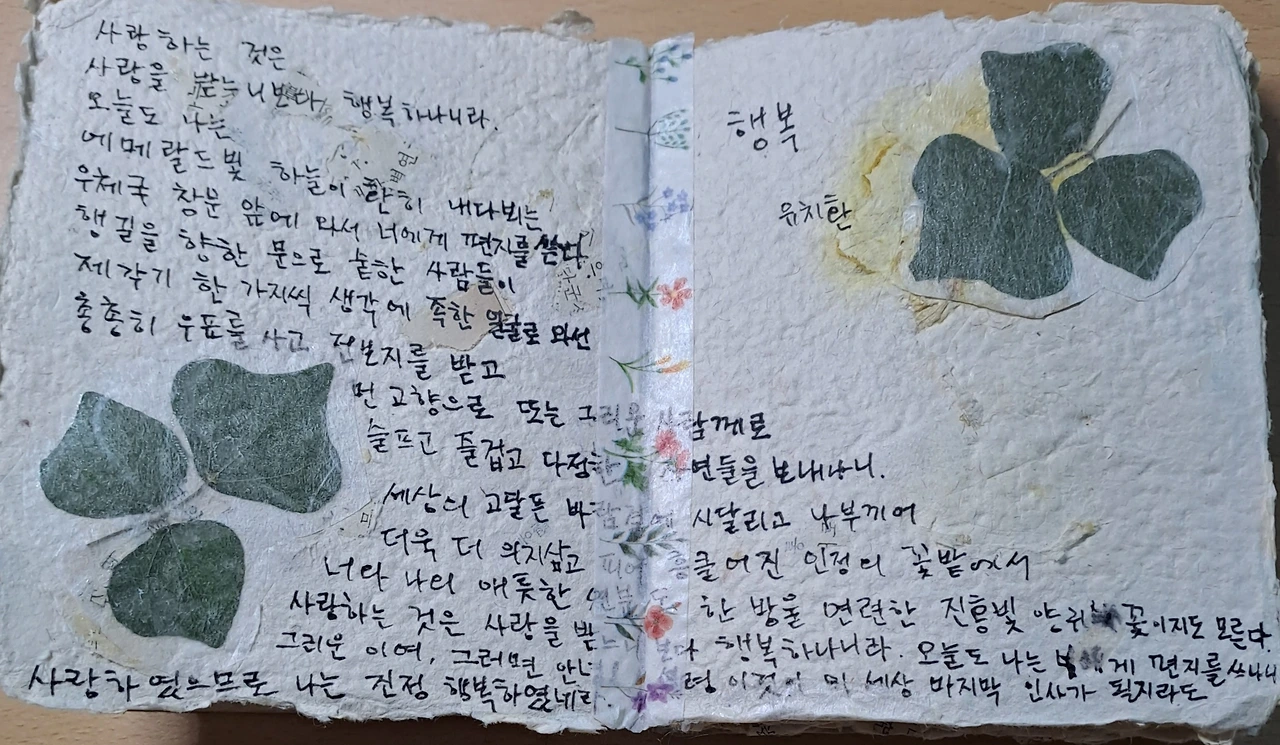 행복
유치환
사랑하는 것은
사랑을 받느니보다 행복하나니라.
오늘도 나는
에메랄드빛 하늘이 환히 내다뵈는
우체국 창문 앞에 와서 너에게 편지를 쓴다.
행길을 향한 문으로 숱한 사람들이
제각기 한 가지씩 생각에 족한 얼굴로 와선
총총히 우표를 사고 전보지를 받고
먼 고향으로 또는 그리운 사람께로
슬프고 즐겁고 다정한 사연들을 보내나니.
세상의 고달픈 바람결에 시달리고 나부끼어
더욱 더 의지삼고 피어 흥클어진 인정의 꽃밭에서
너와 나의 애틋한 연분도 한 방울 연련한 진홍빛 양귀비꽃이지도 모른다.
사랑하는 것은 사랑을 받느니보다 행복하나니라. 오늘도 나는 너에게 편지를 쓰나니
그리운 이여, 그러면 안녕 설령 이것이 이 세상 마지막 인사가 될지라도
사랑하였으므로 나는 진정 행복하였네라.